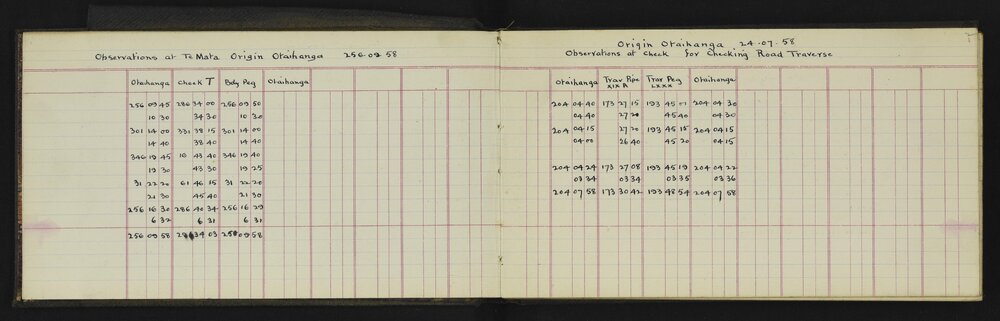 Observations at Te Mata Origin Otaihanga 256-09-58
Otaihanga Check T Bdy Peg Otaihanga
256 09 45 286 34 00 256 09 50
10 30 34 30 10 30
301 14 00 331 38 15 301 14 00
14 40 38 40 14 40
346 19 45 16 43 40 346 19 40
19 30 43 30 19 25
31 22 20 61 46 15 31 22 20
21 30 45 40 21 30
256 16 30 286 40 34 256 16 29
6 32 6 31 6 31
256 09 58 286 34 03 256 09 58
Origin Otaihanga 24-07-58
Observations at Check for Checking Road Traverse
Otaihanga Trav Rpe Trav Peg Otaihanga
XIX A LXXX
204 04 40 173 27 15 193 45 01 204 04 30
04 40 27 20 45 40 04 30
204 04 15 27 20 193 45 15 204 04 15
04 00 26 40 45 20 04 15
204 04 24 173 27 08 193 45 19 204 04 22
03 34 03 34 03 35 03 36
204 07 58 173 30 42 193 48 54 204 07 58